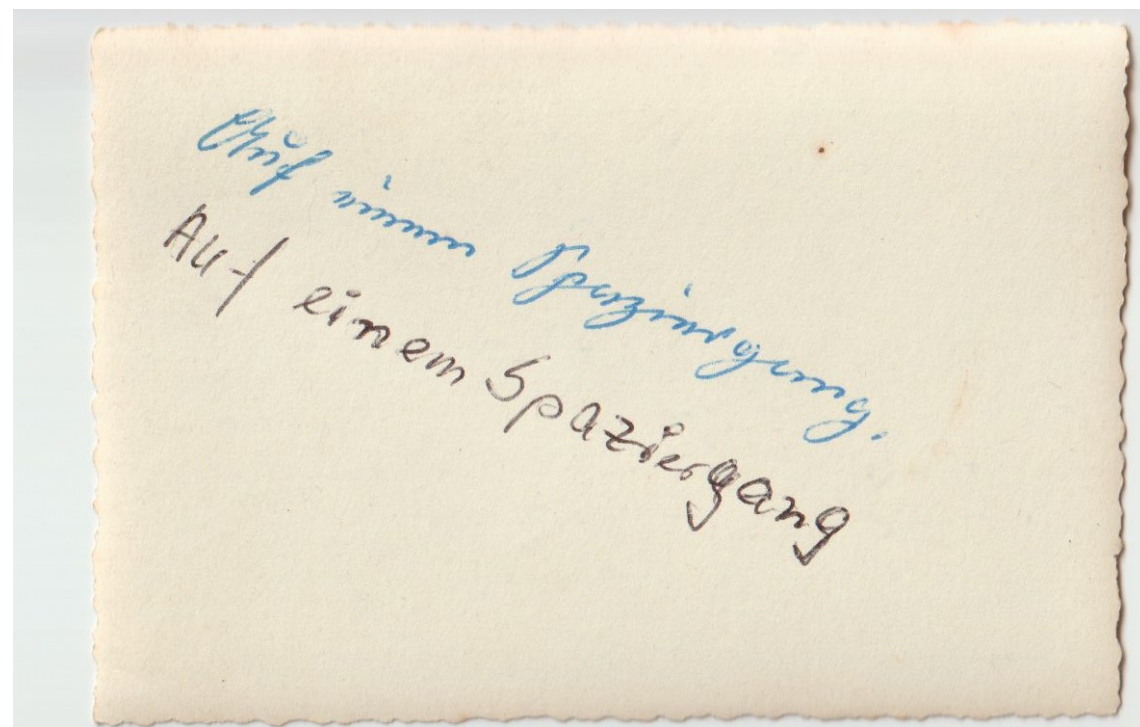 Auf einem Spaziergang.
Auf einem Spaziergang